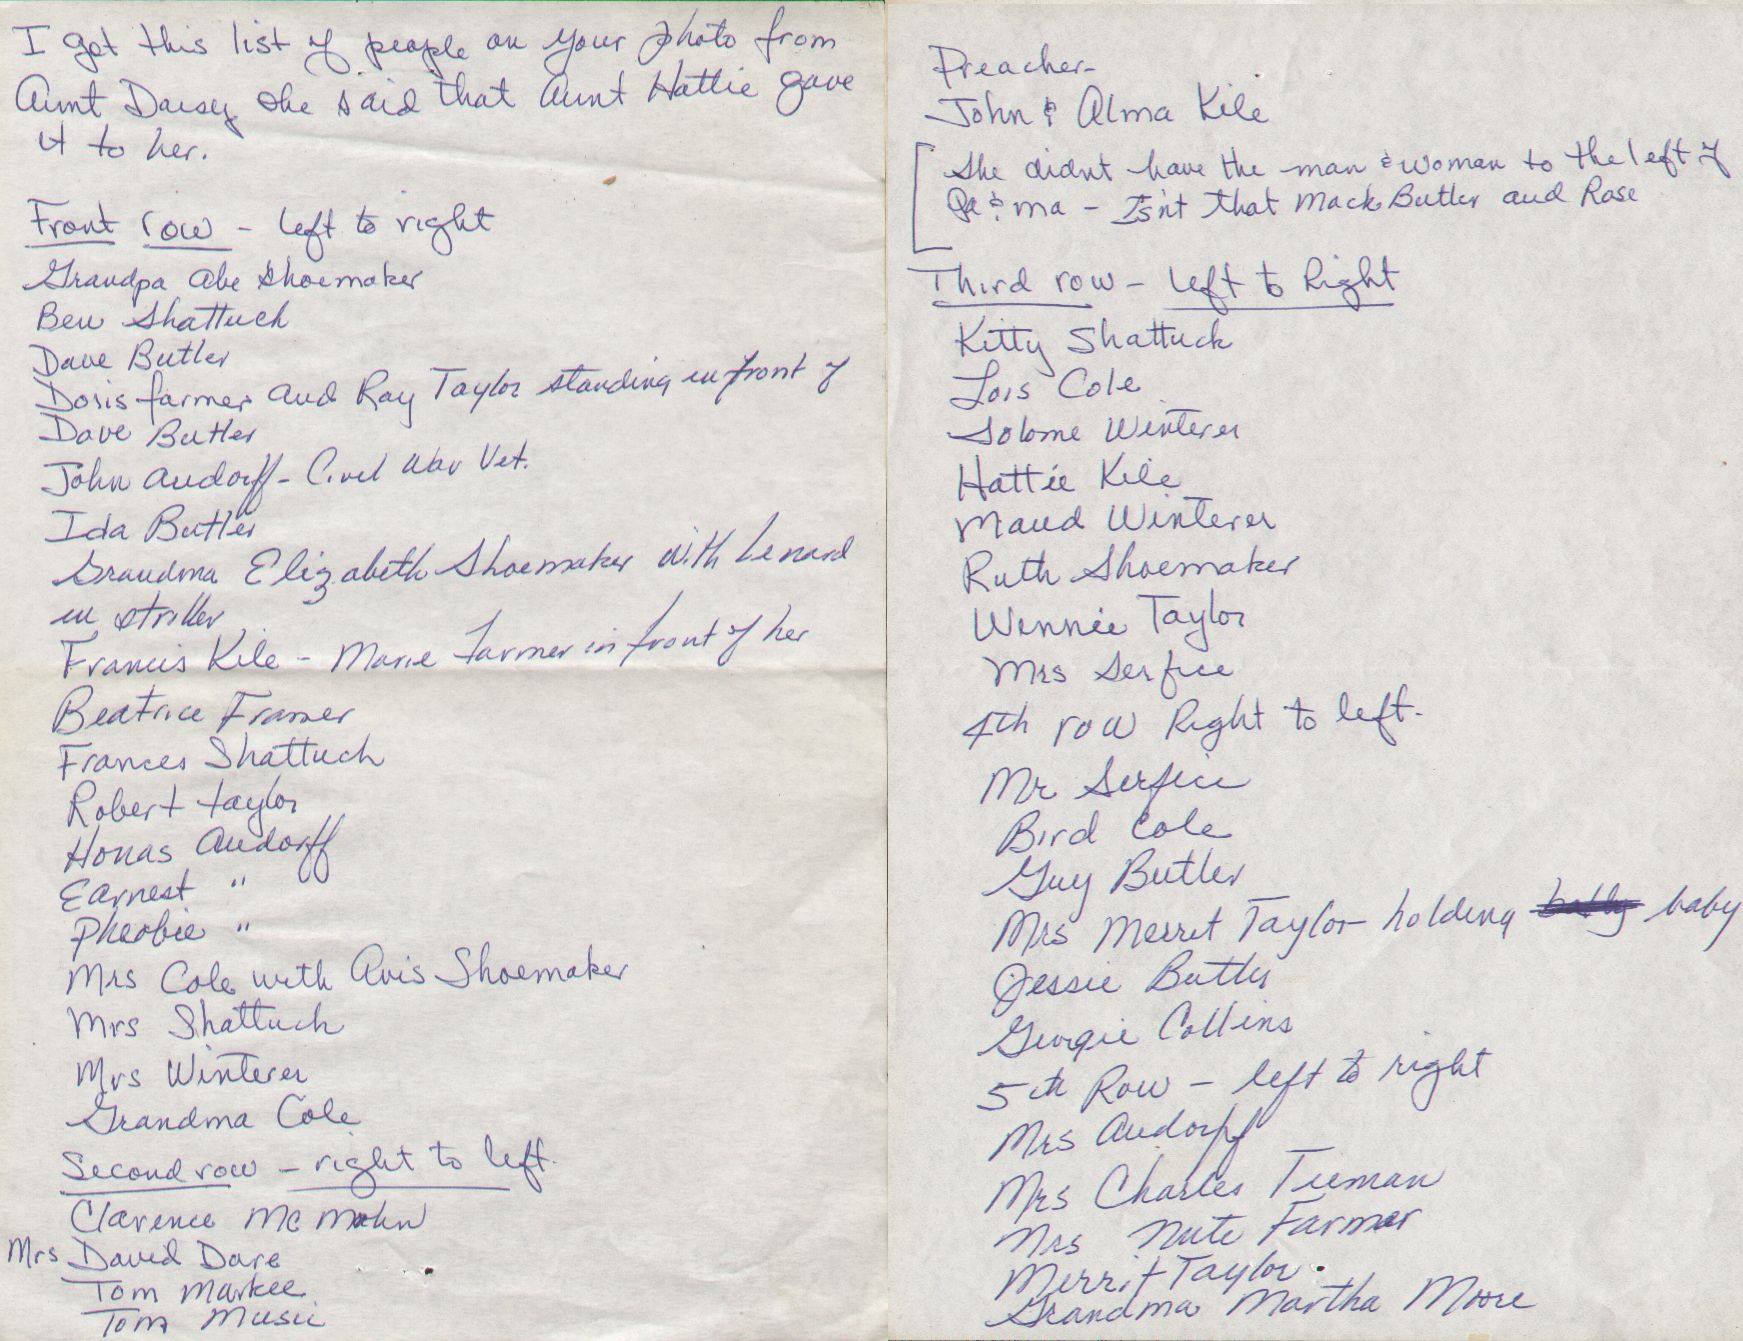 I got this list of people on your photo from
Aunt Daisy she said that Aunt Hattie gave
it to her.
Front row - left to right
Grandpa Abe Shoemaker
Ben Shattuck
Dave Butler
Doris farmer and Ray Taylor standing in front of
Dave Butler
John Audorff - Civil War Vet.
Ida Butler
Grandma Elizabeth Shoemaker with Lenard
in stroller
Francis Kile - Marie Farmer in front of her
Beatrice Framer
Frances Shattuck
Robert taylor
Honas Audorff
Earnest "
Pheobie "
Mrs Cole with Avis Shoemaker
Mrs Shattuck
Mrs Winterer
Grandma Cole
Second row - right to left.
Clarence McMahn
Mrs David Dare
Tom Markee
Tom Music
Preacher-
John & Alma Kile
[ She didnt have the man & woman to the left of
Pa & ma - Isn't that Mack Butler and Rose
Third row - left to Right
Kitty Shattuck
Lois Cole
Solome Winterer
Hattie Kile
Maud Winterer
Ruth Shoemaker
Winnie Taylor
Mrs Serfice
4th row Right to left.
Mr Serfice
Bird Cole
Guy Butler
Mrs Merrit Taylor holding baby
Jessie Butler
Georgie Collins
5th Row - left to right
Mrs Audorff
Mrs Charles Tieman
Mrs Nute Farmer
Merrit Taylor
Grandma Martha Moore